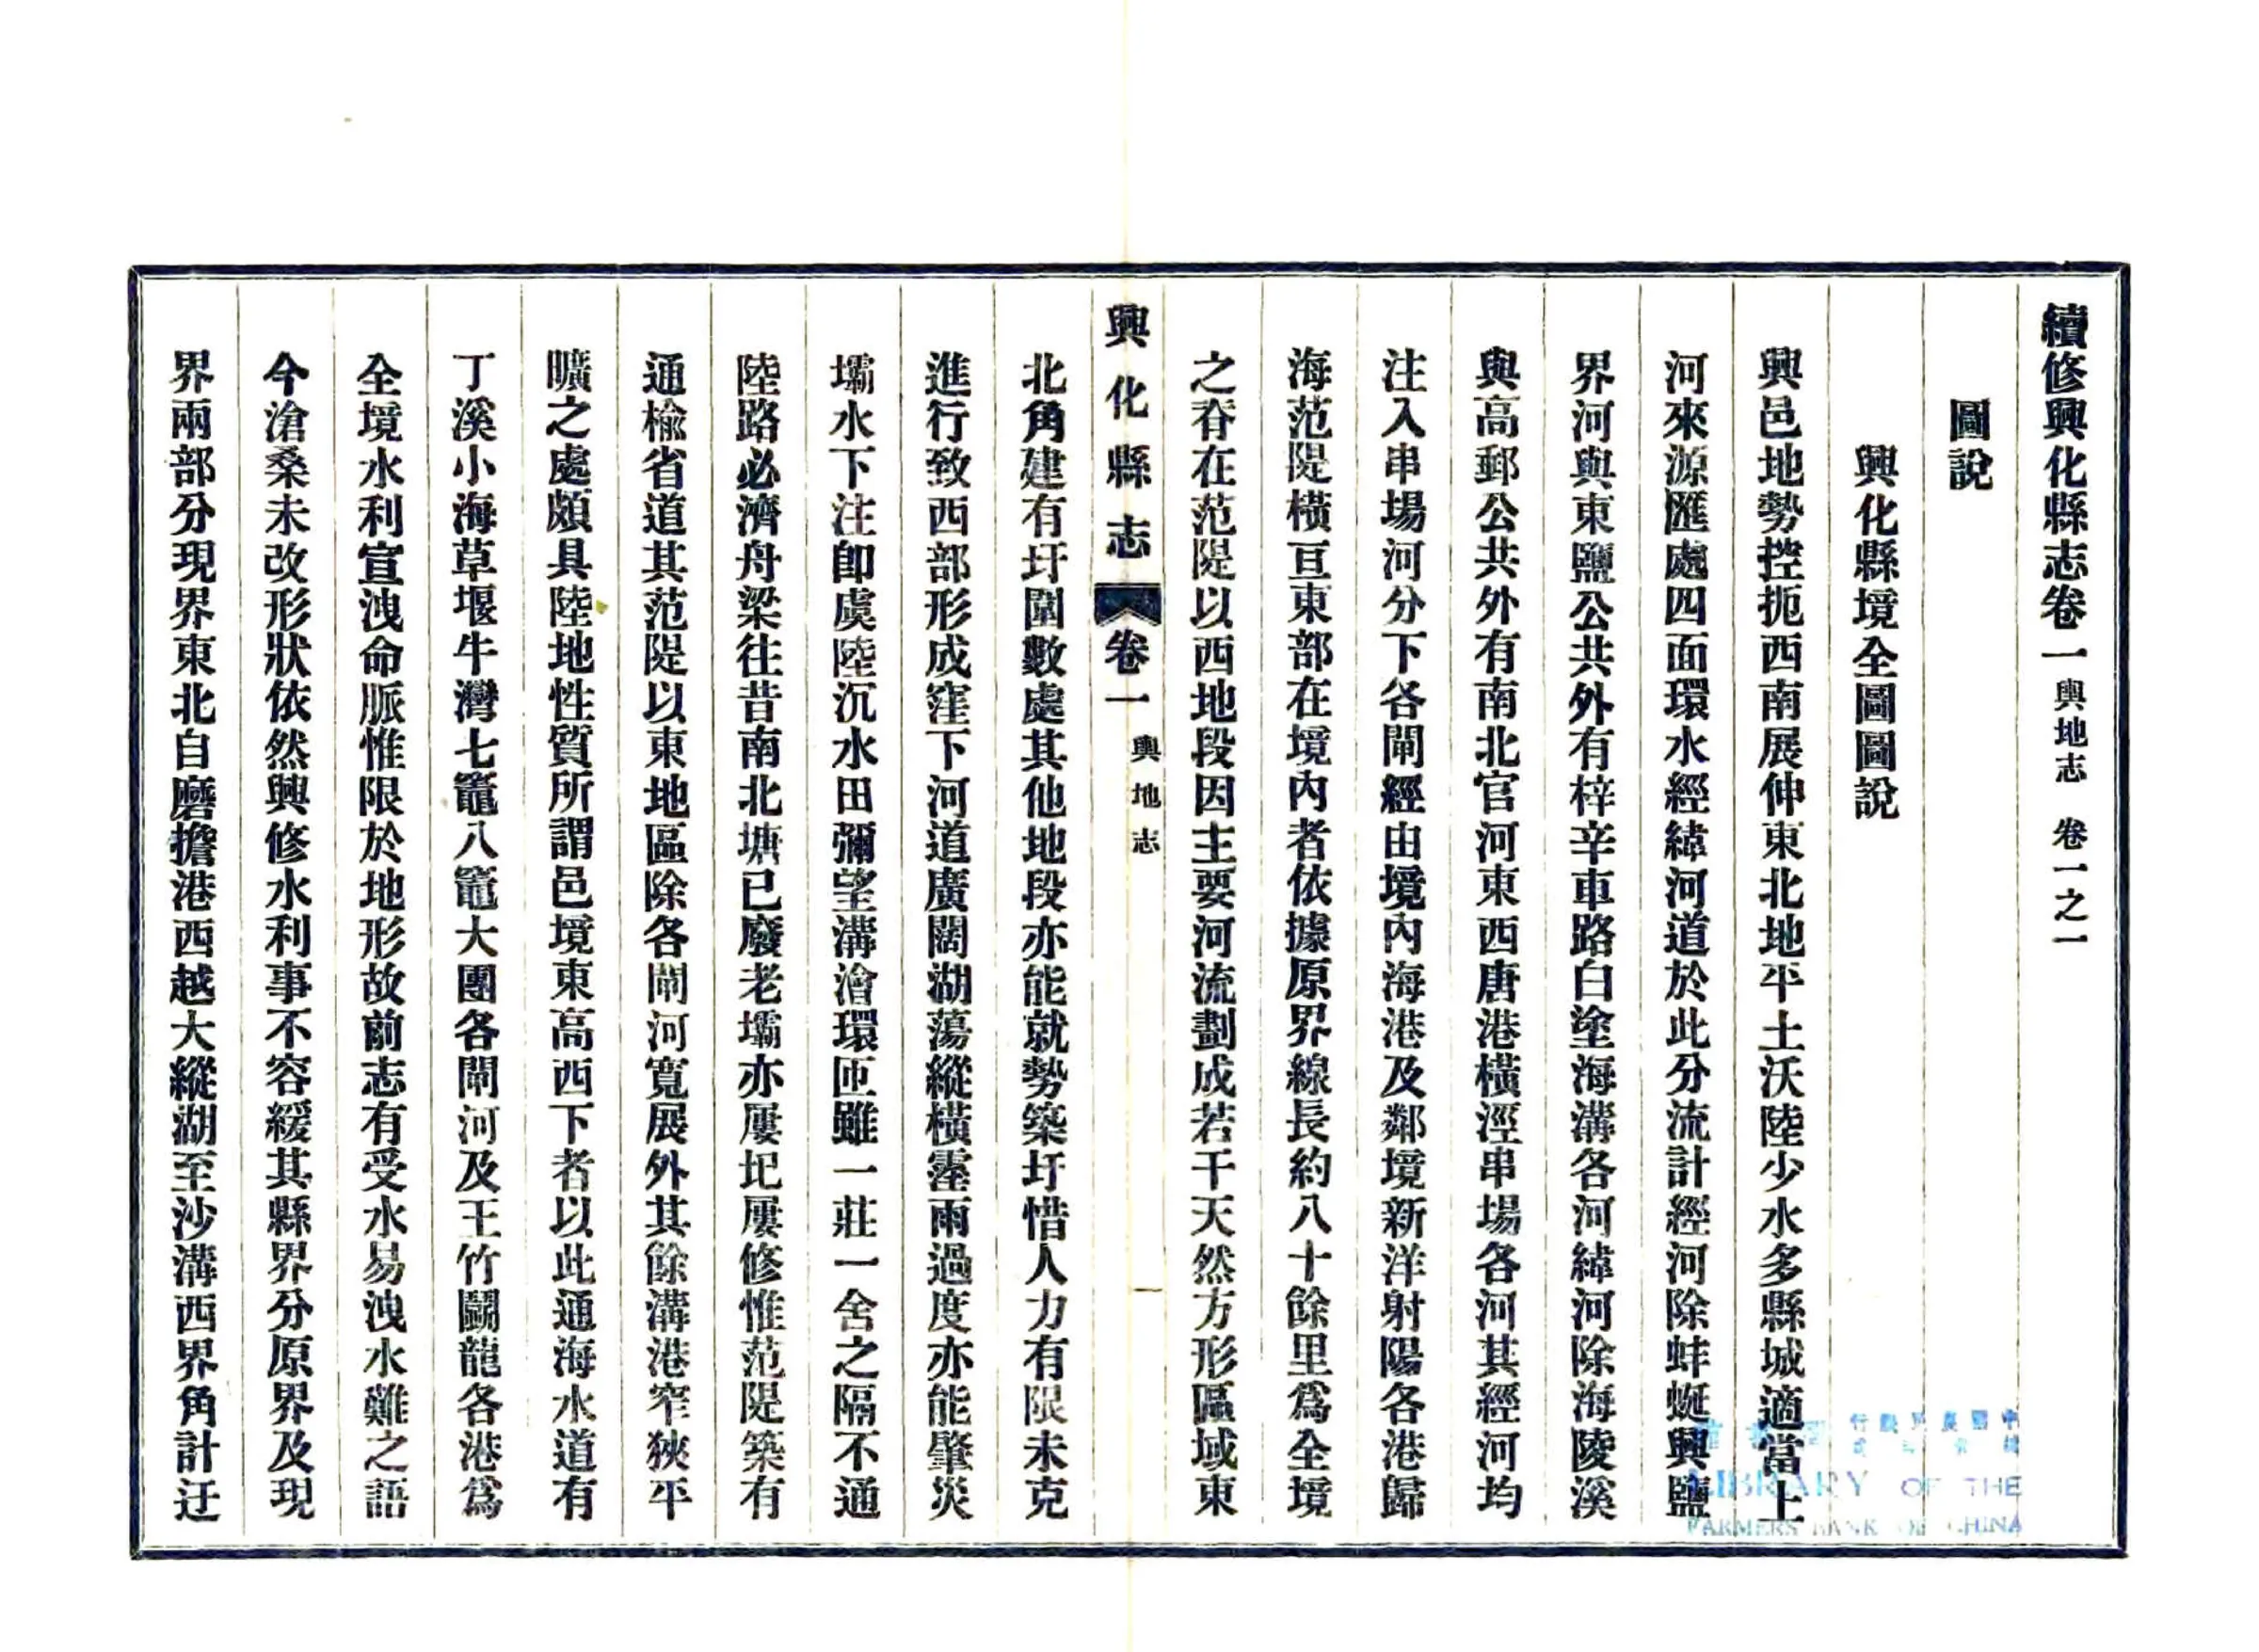 續修興化縣志卷一 輿地志 卷一之一
圖說
興化縣境全圖圖說
興邑地勢控扼西南展伸東北地平土沃陸少水多縣城適當上
河來源匯處四面環水經緯河道於此分流計經河除蚌蜒興鹽
界河與東鹽公共外有梓辛車路白塗海溝各河緯河除海陵溪
與高郵公共外有南北官河東西唐港橫涇串場各河其經河均
注入串場河分下各閘經由境內海港及鄰境新洋射陽各港歸
海范隄橫亘東部在境內者依據原界線長約八十餘里爲全境
之脊在范隄以西地段因主要河流劃成若干天然方形區域東
興化縣志 卷一 輿地志 一
北角建有圩圍數處其他地段亦能就勢築圩惜人力有限未克
進行致西部形成窪下河道廣闊湖蕩縱橫霪雨過度亦能肇災
壩水下注卽虞陸沉水田彌望溝澮環匝雖一莊一舍之隔不通
陸路必濟舟梁往昔南北塘已廢老壩亦屢圮屢修惟范隄築有
通楡省道其范隄以東地區除各閘河寬展外其餘溝港窄狹平
曠之處頗具陸地性質所謂邑境東高西下者以此通海水道有
丁溪小海草堰牛灣七竈八竈大團各閘河及王竹鬬龍各港爲
全境水利宣洩命脈惟限於地形故前志有受水易洩水難之語
今滄桑未改形狀依然興修水利事不容緩其縣界分原界及現
界兩部分現界東北自磨擔港西越大縱湖至沙溝西界角計迂
LIBRARY OF THE
FARMERS BANK OF CHINA